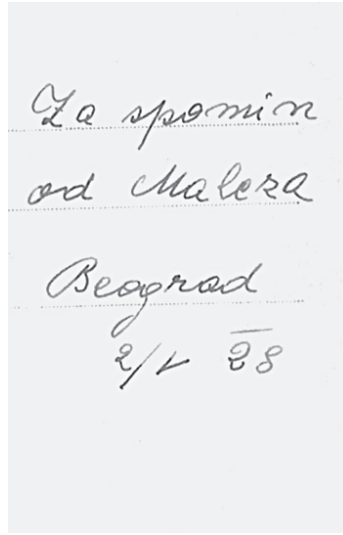 Za spomin
od Maleza
Beograd
2/V 28